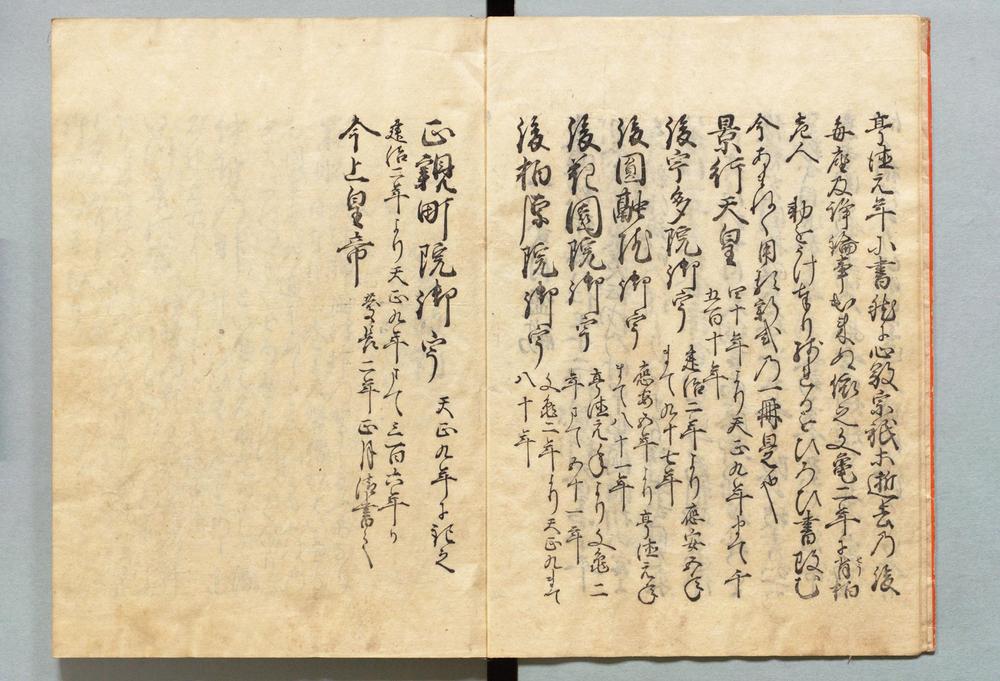 享徳元年に書然に心敬宗祇等逝去乃後
毎座及諍論事出来ぬ依之文亀二年に肖柏
老人　勅をうけ奉り残れるをひろひ書改む
今あまねく用新式乃一冊是也
景行天皇　四十年より天正九年まて千
五百十年
後宇多院御宇　建治二年より應安五年
まて九十七年
後圓融院御宇　應安五年より享徳元年
まて八十一年
後花園院御宇　享徳元年より文亀二
年まて五十一年
後柏原院御宇　文亀二年より天正九まて
八十年
正親町院御宇　天正九年に記之
建治二年より天正九年まて三百六年り
今上皇帝　慶長二年正月清書之